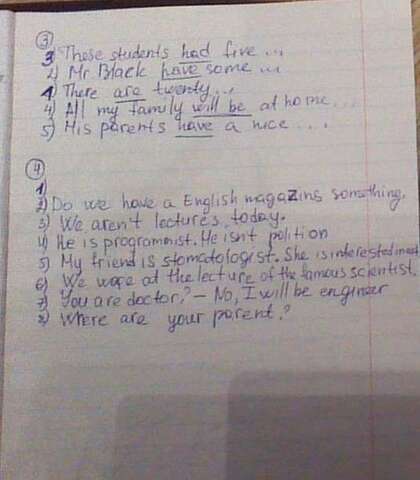 ③
3) These students had five ...
2) Mr. Black have some ...
1) There are twenty...
4) All my family will be at home...
5) His parents have a nice ....
④
1)
2) Do we have a English magazins something.
3) We aren't lectures, today.
4) He is programmist. He isn't polition
5) My friend is stomatologist. She is interested in
6) We wore at the lecture of the famous scientist.
7) You are doctor? - No, I will be engineer
8) Where are your parent?